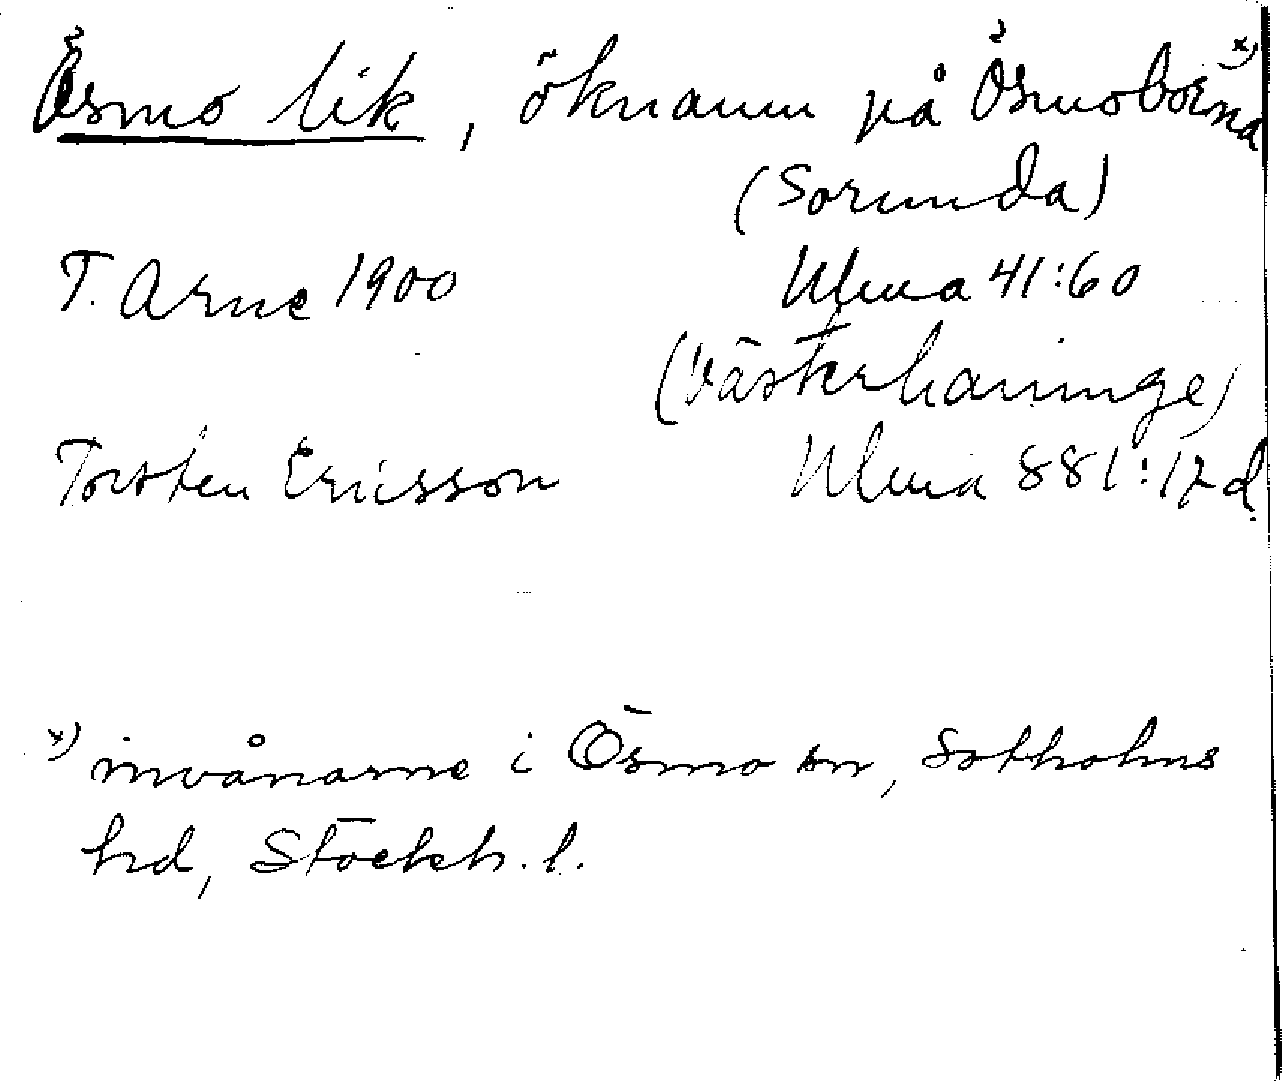 Ösmo lik, öknamn på Ösmoborna x)
(Sorunda)
T. Arne 1900 Ulma 41:60
(Västerhaninge)
Torsten Ericsson Ulma 881:12 d.
x) invånarne i Ösmo sn, Sotholms
hd, Stockh. l.